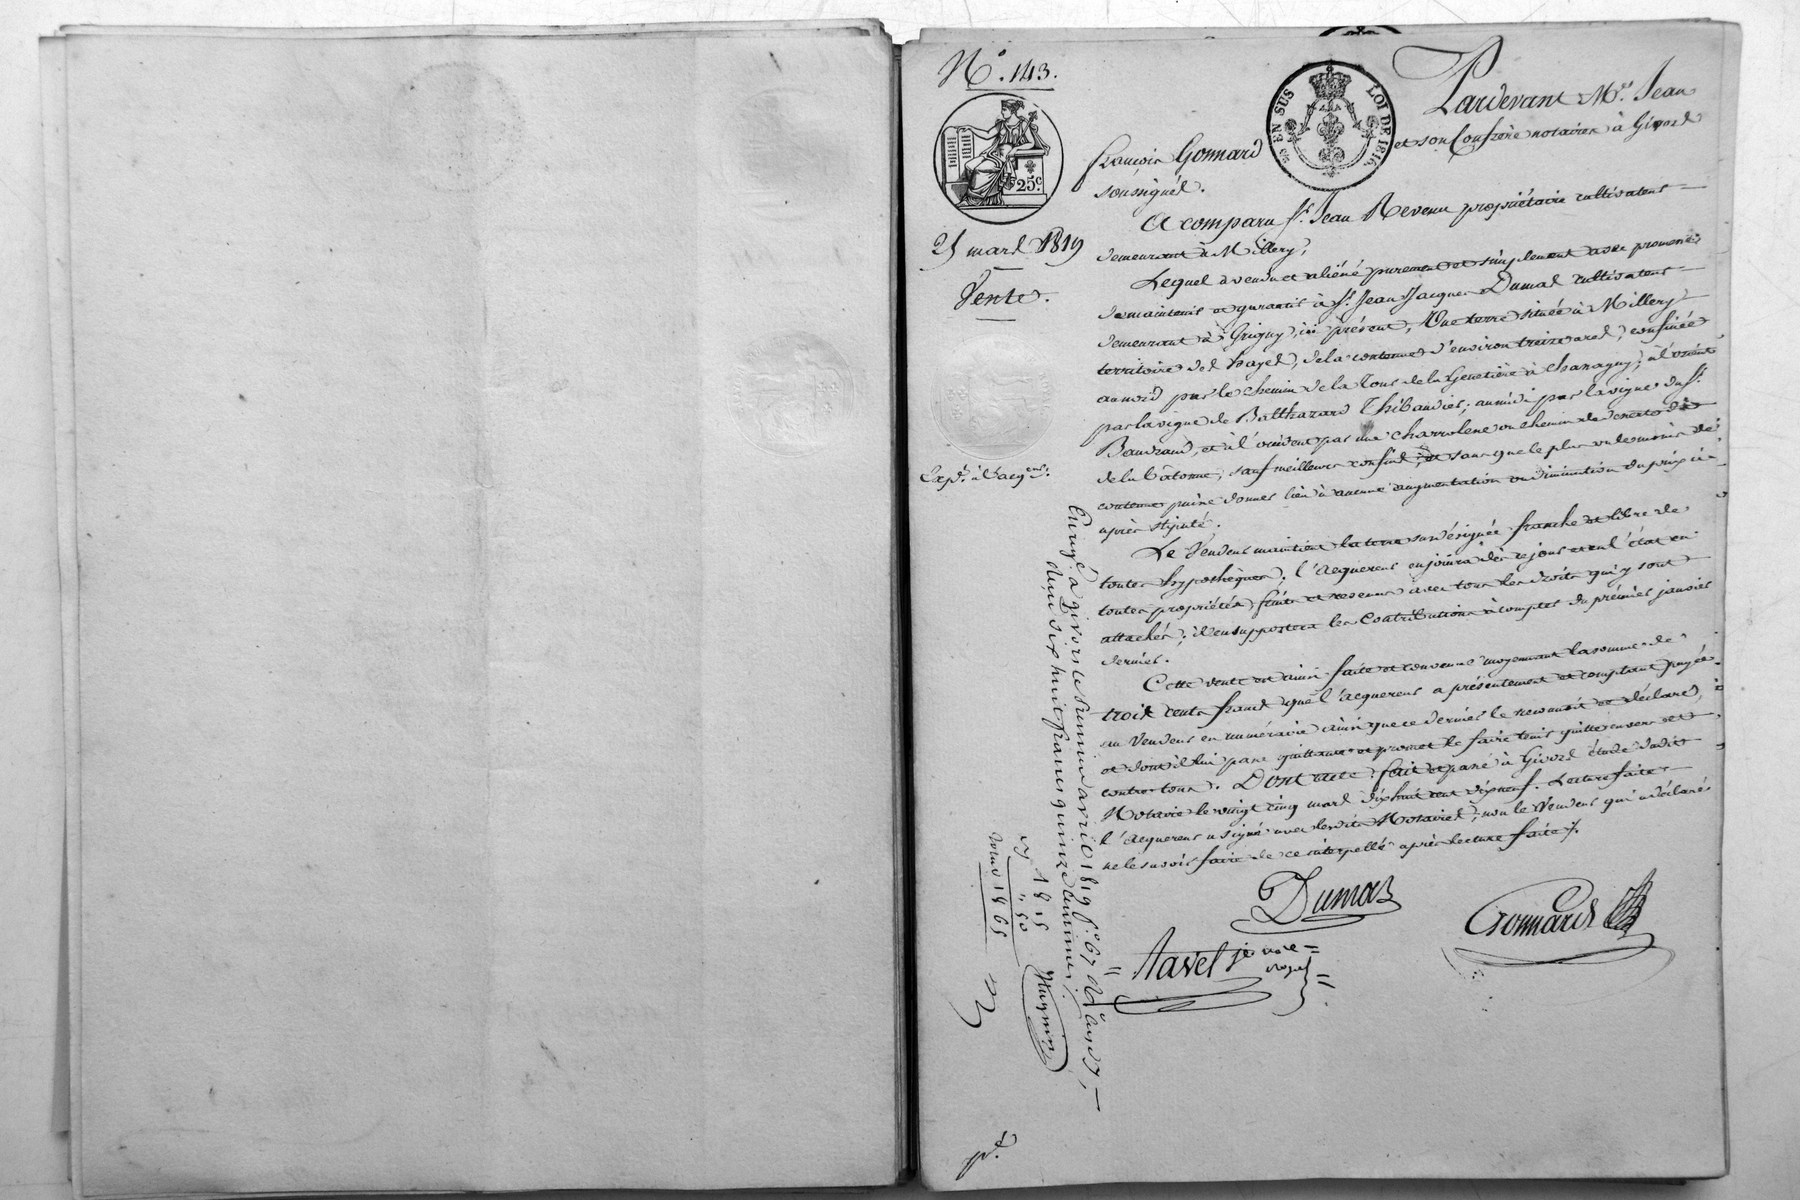 N.° 143.
EN SUS LOI DE 1816.
25.c
25 mars 1819
Vente.
Exp.on à l'acq.eur
Pardevant M.e Jean
françois Gonnard et son Confrère notaires à Givors
soussignés.
A comparu S.r Jean Revenu propriétaire cultivateur
demeurant à Millery,
Lequel a vendu et aliéné purement et simplement avec promesse
de maintenir et garantir à S.r Jean Jacques Dumas cultivateur
demeurant à Grigny, ici présent, Une terre située à Millery
territoire des hayes, de la contenue d'environ treize ares, confinée
au nord par le chemin de la Tour de la Genetière à Chanagny; à l'orient
par la vigne de Balthazard Thibaudier; au midi par la vigne du S.r
Baudrand, et à l'occident par une charrolene ou chemin de
de la Bâtonne, sauf meilleurs confins, et sans que le plus ou le moins de
contenue puisse donner lieu à aucune augmentation ou diminution du prix ci-
après stipulé.
Le Vendeur maintient la terre susdésignée franche et libre de
toutes hypothèques; l'acquereur en jouira dès ce jour et en l'état en
toutes propriétés, fruits et revenus avec tous les droits qui y sont
attachés; il en supportera les Contributions à compter du premier janvier
dernier.
Cette vente est ainsi faite et convenue moyennant la somme de
trois cents francs que l'acquereur a présentement et comptant payée
au Vendeur en numéraire ainsi que ce dernier le reconnoit et déclare,
et dont il lui passe quittance et promet le faire tenir quitte envers et
contre tous. Dont acte, fait et passé à Givors étude dudit
Notaire le vingt cinq mars dix huit cent dix neuf. Lecture faite
l'acquereur a signé avec lesdits Notaires, non le Vendeur qui a déclaré
ne le savoir faire de ce interpellé après lecture faite /.
Dumas
Gonnard
Navel j.e no.re royal
Enreg.é à givors le premier avril 1819 f.o 67 R.o Case 7,
reçu dix huit francs quinze centimes
18 15
" 50
18 65